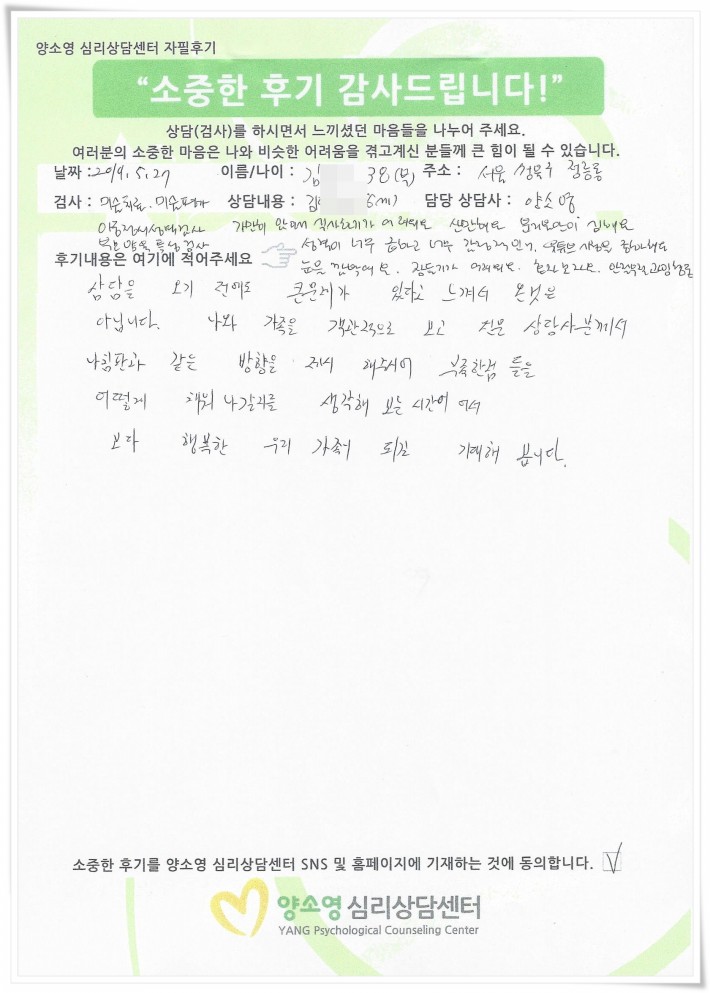 양소영 심리상담센터 자필후기
“소중한 후기 감사드립니다!”
상담(검사)를 하시면서 느끼셨던 마음들을 나누어 주세요.
여러분의 소중한 마음은 나와 비슷한 어려움을 겪고계신 분들께 큰 힘이 될 수 있습니다.
날짜 : 2019. 5. 27 이름/나이 : 김 38(부) 주소 : 서울 성북구 정릉동
검사 : 미술치료. 미술평가 상담내용 : 김 담당 상담사 : 양소영
가만히 앉아서 식사하기가 어려워요 산만해요
부모양육태도검사 성격이 너무 급하고 너무
후기내용은 여기에 적어주세요 눈을 깜박여요. 잠들기가 어려워요.
상담을 오기 전에도 큰문제가 있다고 느껴서 온것은
아닙니다. 나와 가족을 객관적으로 보고 전문 상담사분께서
나침판과 같은 방향을 제시 해주시어 부족한점 들을
어떻게 채워 나갈지를 생각해 보는 시간이 여서
보다 행복한 우리 가족이 되길 기대해 봅니다.
소중한 후기를 양소영 심리상담센터 SNS 및 홈페이지에 기재하는 것에 동의합니다.
양소영 심리상담센터
YANG Psychological Counseling Center